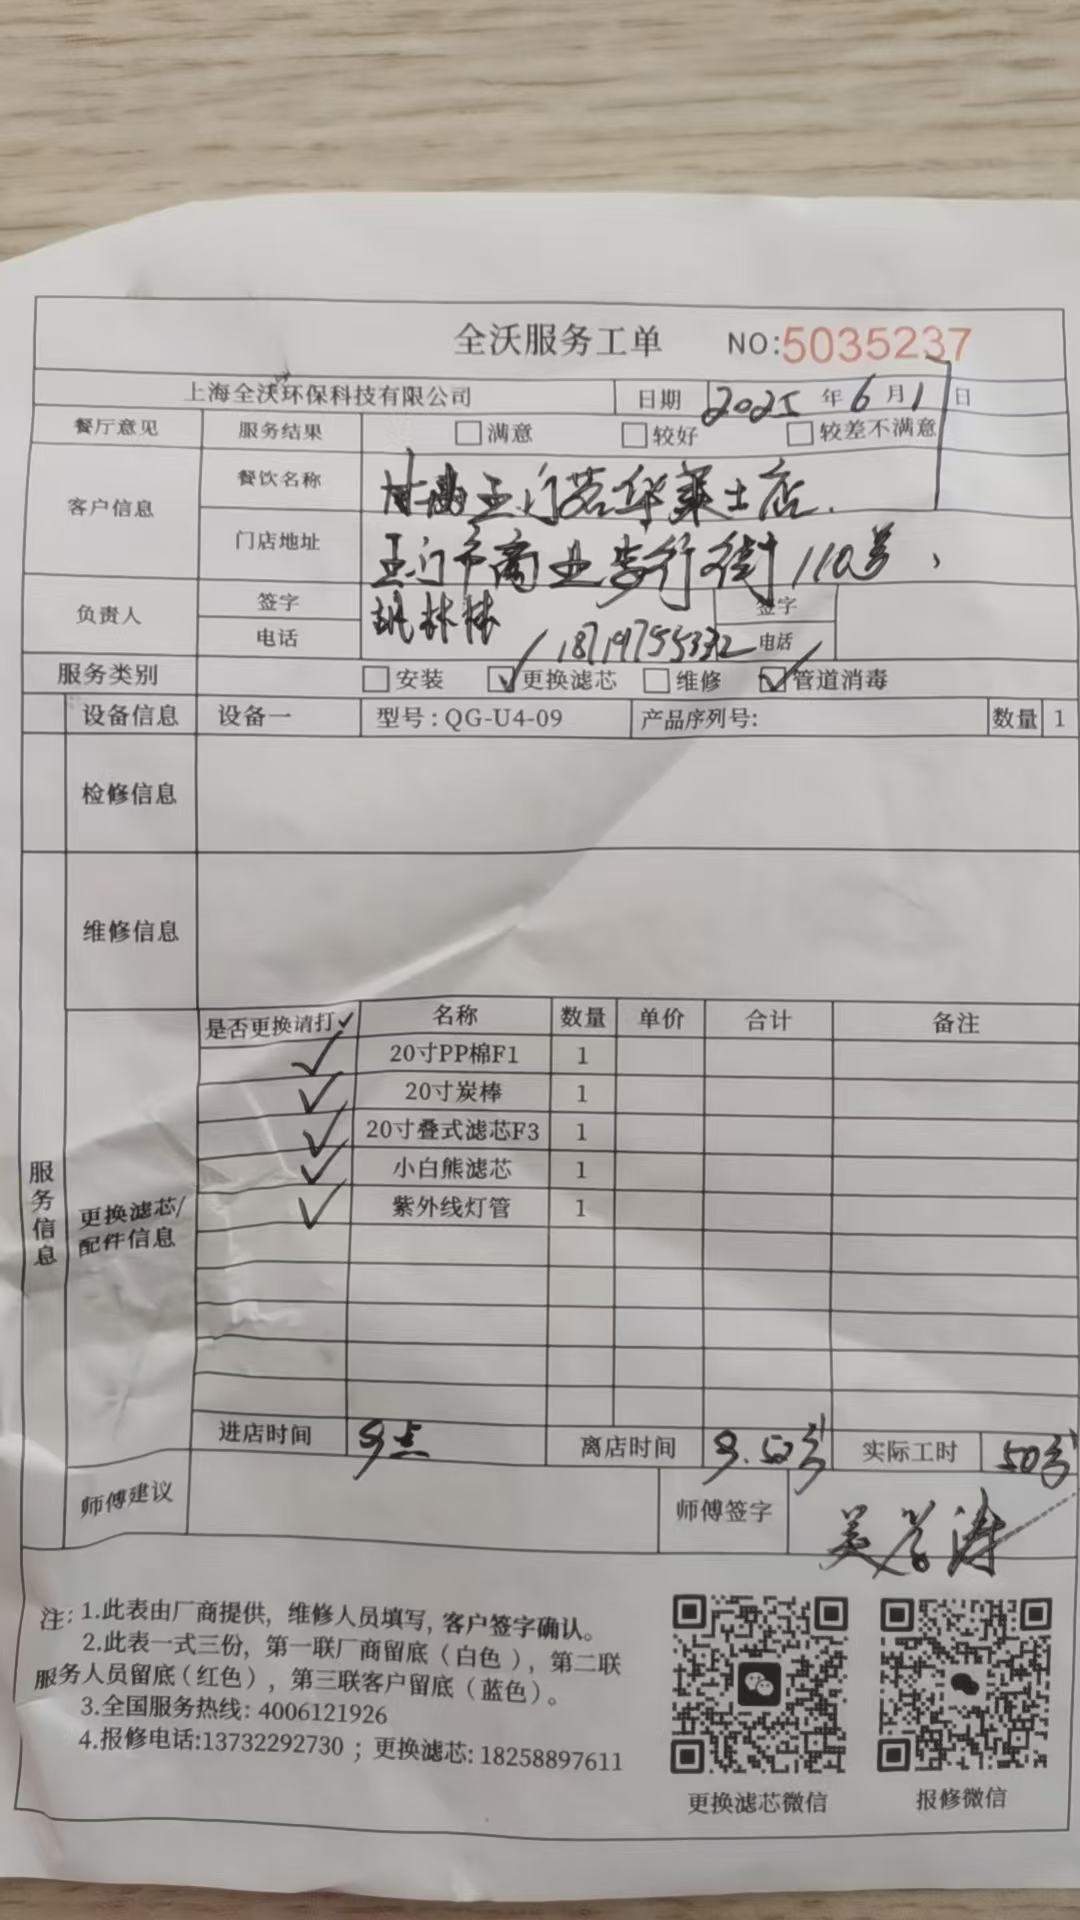 全沃服务工单 NO:5035237
上海全沃环保科技有限公司 日期 2025 年 6 月 1 日
餐厅意见 服务结果 □满意 □较好 □较差不满意
客户信息 餐饮名称 甘肃玉门若华莱士店.
门店地址 玉门市商业步行街110号
负责人 签字 林林 签字
电话 18719755332 电话
服务类别 □安装 ☑更换滤芯 □维修 ☑管道消毒
设备信息 设备一 型号:QG-U4-09 产品序列号: 数量 1
检修信息
维修信息
服务信息
更换滤芯/配件信息
是否更换请打✓ 名称 数量 单价 合计 备注
✓ 20寸PP棉F1 1
✓ 20寸炭棒 1
✓ 20寸叠式滤芯F3 1
✓ 小白熊滤芯 1
✓ 紫外线灯管 1
进店时间 9点 离店时间 9.50分 实际工时 50分
师傅建议 师傅签字 涛
注: 1.此表由厂商提供, 维修人员填写, 客户签字确认。
2.此表一式三份, 第一联厂商留底(白色), 第二联
服务人员留底(红色), 第三联客户留底(蓝色)。
3.全国服务热线: 4006121926
4.报修电话:13732292730 ; 更换滤芯: 18258897611
更换滤芯微信 报修微信